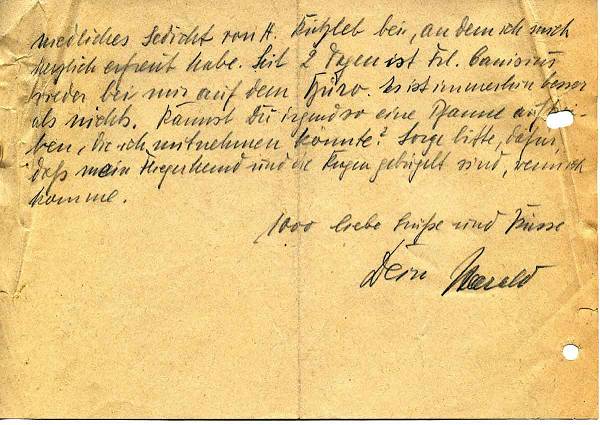 niedliches Gedicht von H. Kützleb bei, an dem ich mich
herzlich erfreut habe. Seit 2 Tagen ist Frl. Canisius
wieder bei mir auf dem Büro. Es ist immerhin besser
als nichts. Kannst Du irgendso eine Pfanne auftrei-
ben, die ich mitnehmen könnte? Sorge bitte, dafür,
daß mein Fliegerhemd und die Kragen gebügelt sind, wenn ich
komme.
1000 liebe Grüße und Küsse
Dein Harald